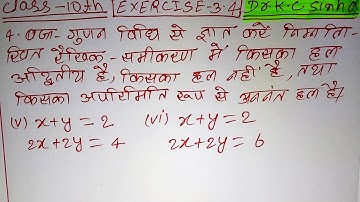 Class-10th [EXERCISE-3.4] Dr.K.C Sinha
4. वज्र- गुणन विधि से ज्ञात करें निम्नलि-
खित रैखिक- समीकरण में किसका हल
अद्वितीय है, किसका हल नहीं है, तथा
किसका अपरिमित रूप से अनंत हल है।
(v) x+y = 2 (vi) x+y = 2
2x+2y = 4 2x+2y = 6